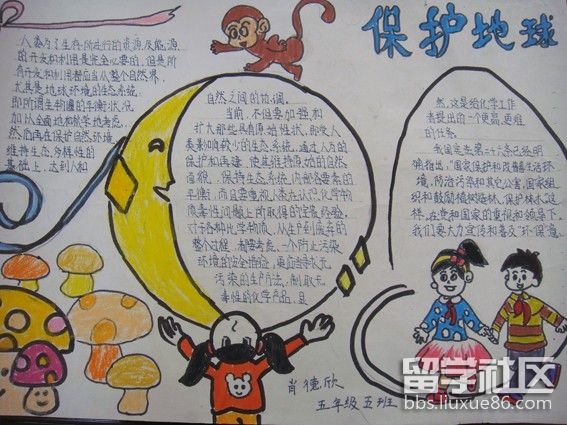 保护地球
人类为了生存所进行的资源及能源
的开发和利用是完全必要的，但是所
有开发和利用都应当从整个自然界，
尤其是地球环境的生态系统，
即所谓生物圈的平衡状况
加以全面地和科学地考虑，
然后再在保护自然环境，
维持生态多样性的
基础上，达到人和
自然之间的协调。
当前，不但要加强和
扩大那些具有原始性状，即受人
类影响较少的生态系统，通过人为的
保护和改建，使其维持原始的自然
面貌，保持生态系统内部各要素的
平衡，而且要重视人类在认识化学物
质毒性问题上所取得的宝贵经验，
对于各种化学物质，从生产到废弃的
整个过程，都要考虑
环境的安全措施，
污染的生产方法，制取无
毒性的化学产品，且
然，这是给化学工作
者提出的一个更高，更难
的任务。
我国宪法第二十六条已经明
确指出，“国家保护和改善生活环
境，防治污染和其它公害，国家组
织和鼓励植树造林，保护林木”这
样，在党和国家的重视和领导下，
我们要大力宣传和普及“环保”意
肖德欣
五年级五班
留学社区
bbs.liuxue86.com